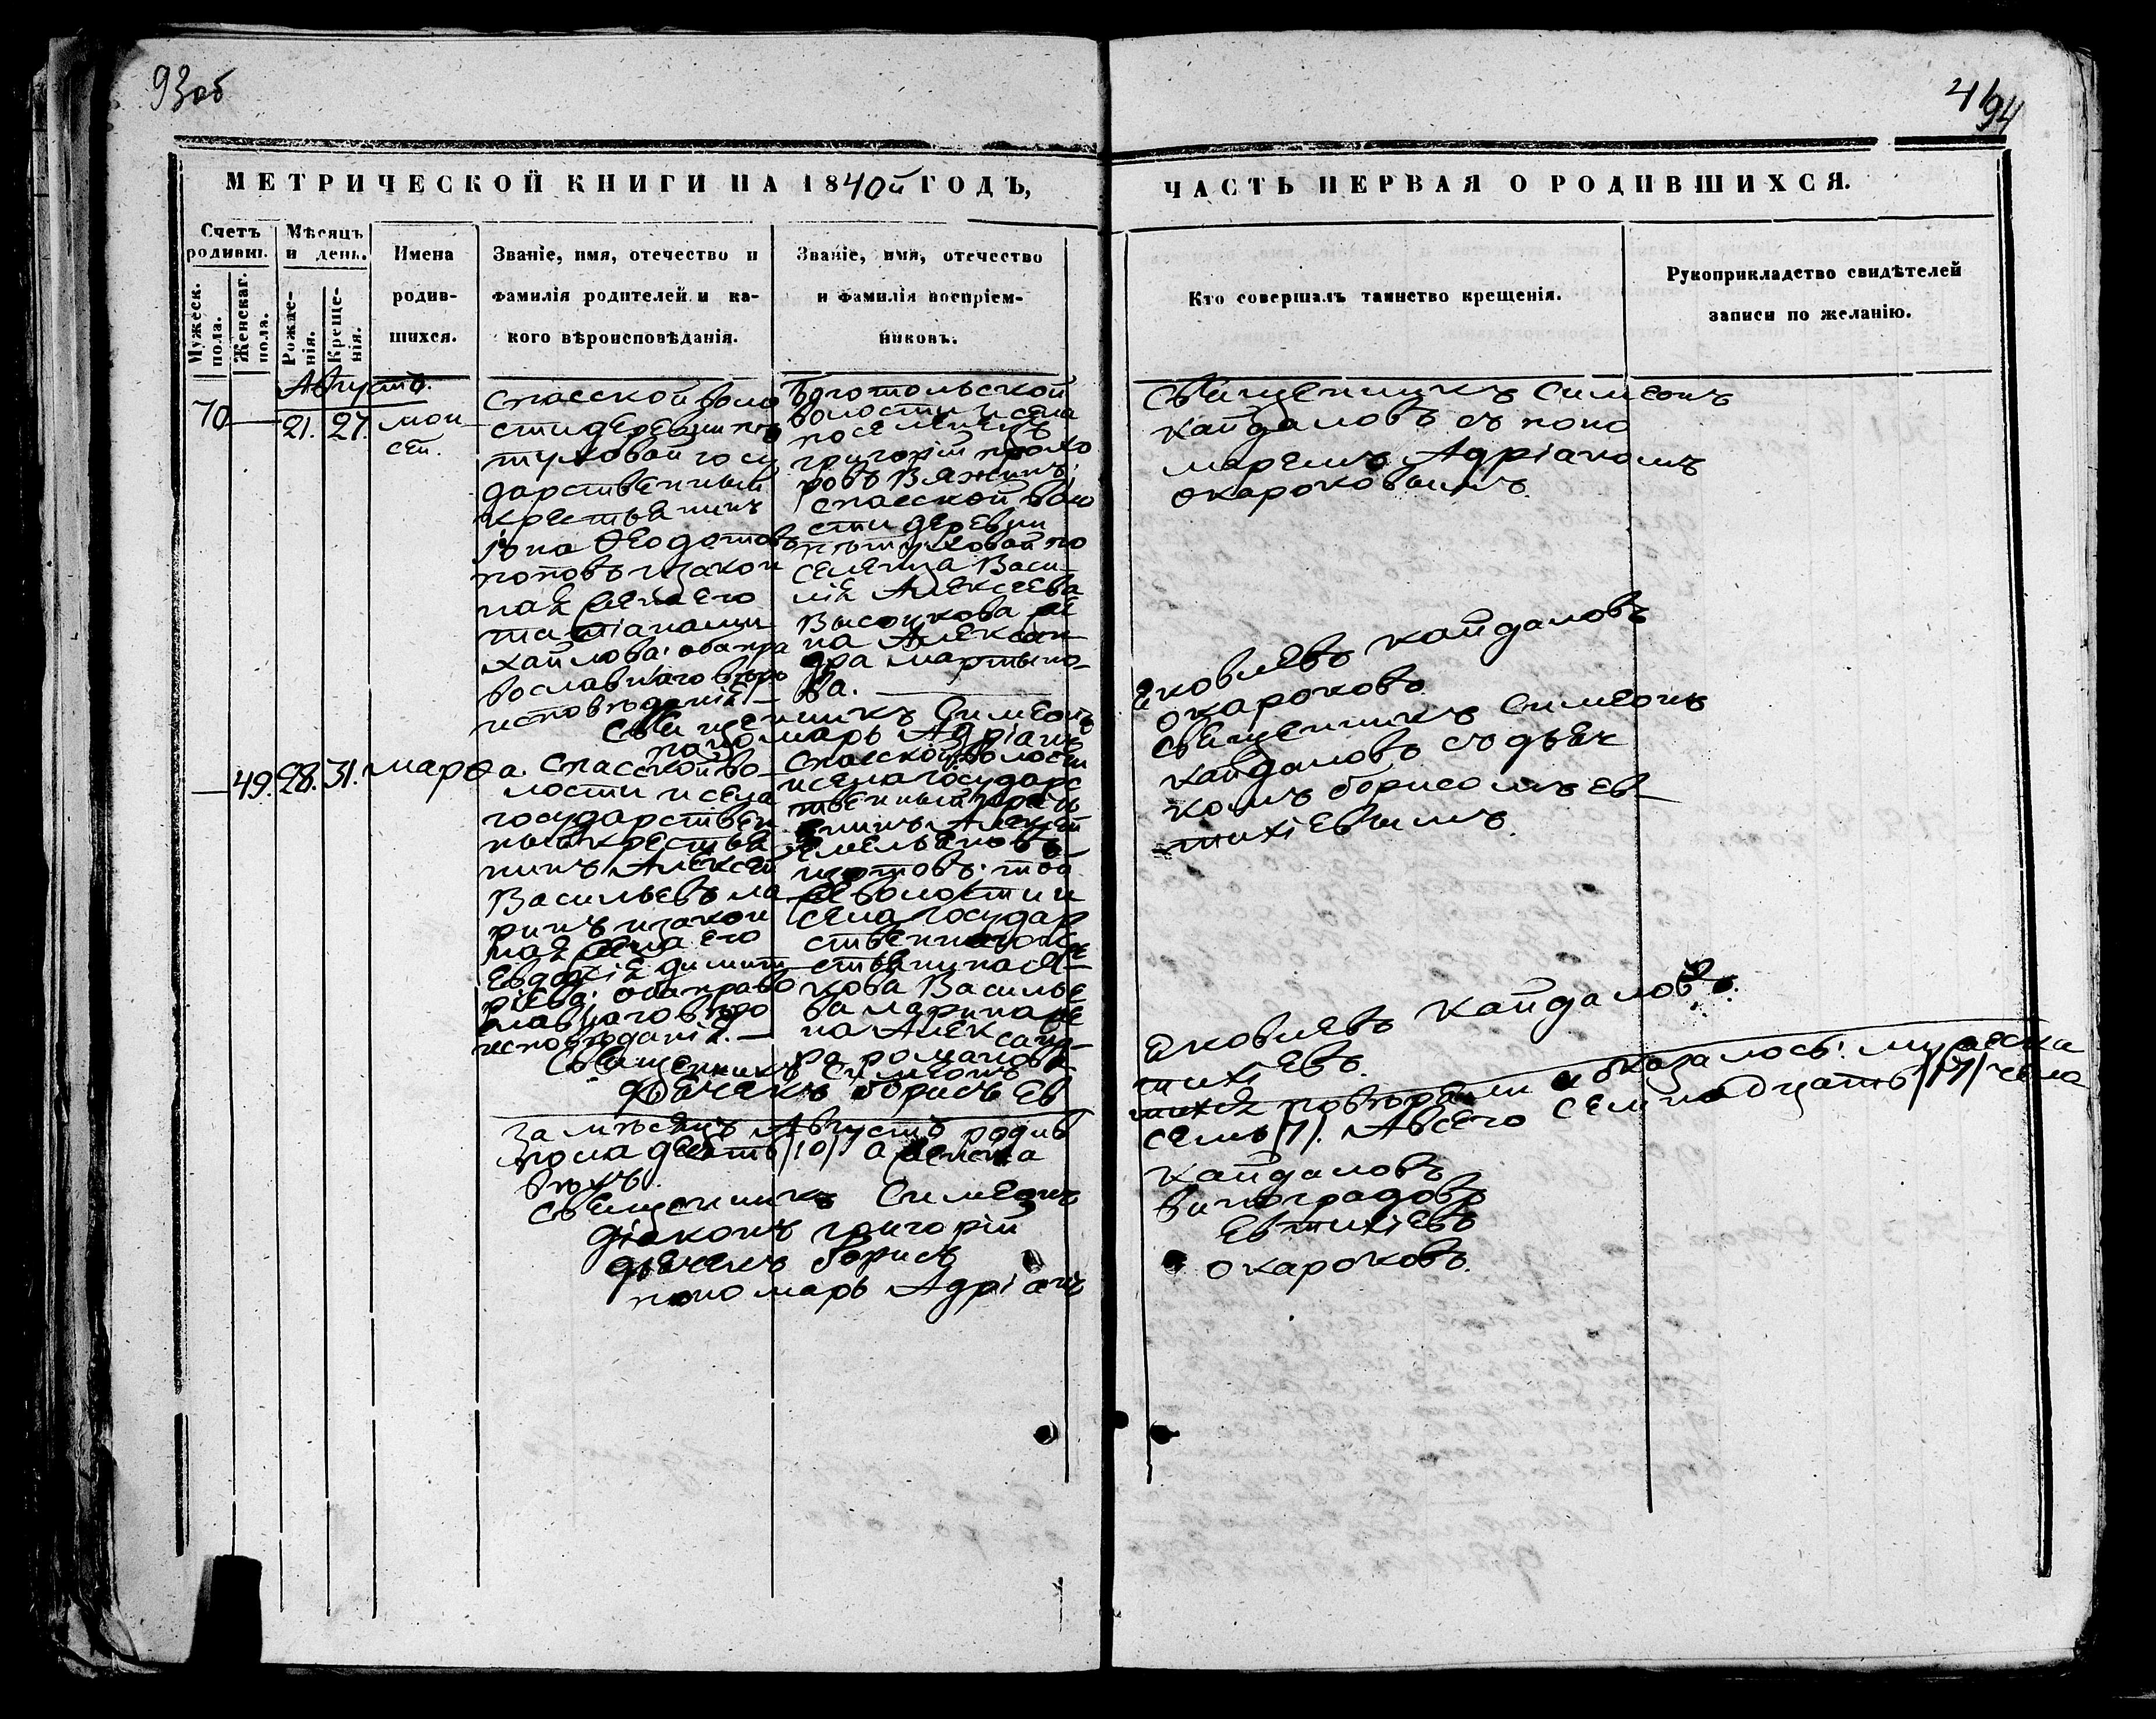 93об
41
94
МЕТРИЧЕСКОЙ КНИГИ НА 1840й ГОДЪ,
ЧАСТЬ ПЕРВАЯ О РОДИВШИХСЯ.
Счетъ родивш.
Мѣсяцъ и день.
Мужеск. пола.
Женскаг. пола.
Рожде-нія.
Креще-нія.
Имена
родив-
шихся.
Званіе, имя, отечество и
фамилія родителей и ка-
кого вѣроисповѣданія.
Званіе, имя, отечество
и фамилія воспріем-
никовъ.
Кто совершалъ таинство крещенія.
Рукоприкладство свидѣтелей
записи по желанію.
Августъ.
70
21. 27.
мои
сей.
Спасской воло
сти деревни пѣ
туховой госу
дарственный
крестьянинъ
Іона Ѳеодотовъ
поповъ и закон
ная жена его
татіана ми
хайлова: оба пра
вославнаго вѣро
исповѣданія.—
Боготольской
волости и села
поселенецъ
григорій прохо
ровъ Вяжинъ;
Спасской воло
сти деревни
пѣтуховой по
селенца Васи-
лія Алексѣева
Высоцкова же
на Алексан-
дра мартыно-
ва.
Священникъ Симеонъ
кайдаловъ съ поно
маремъ Адріаномъ
окароковымъ.
Священникъ Симеонъ Яковлевъ кайдаловъ
пономарь Адріанъ окароковъ
49. 28. 31. марѳа.
Спасской во-
лости и села
государствен
ный крестья
нинъ Алексѣй
Васильевъ ла
ринъ и закон
ная жена его
Евдокія димит
ріева: оба право
славнаго вѣро
исповѣданія.—
Спасской волости
и села государс
твенный кресть
янинъ Алексѣй
Емельяновъ
изотовъ: той
же волости и
села государ
ственнаго кре
стьянина Я-
кова Василье
ва ларина же
на Александ-
ра романова
Священникъ Симеонъ
кайдаловъ съ дьяч
комъ борисомъ ев-
тихіевымъ.
Священникъ Симеонъ Яковлевъ кайдаловъ.
Дьячекъ борисъ Ев тихіевъ.
За мѣсяцъ Августъ родив шихся повѣряли и оказалось: мужеска
пола десять /10/ а женска семь /7/. А всего семнадцать /17/ чело
вѣкъ.
Священникъ Симеонъ кайдаловъ
діаконъ григорій виноградовъ
дьячекъ борисъ Евтихіевъ
пономарь Адріанъ окароковъ.